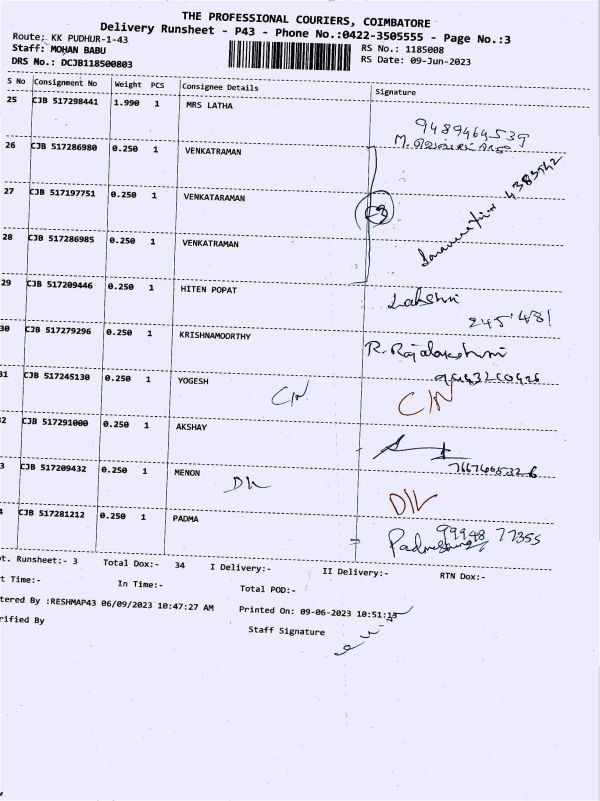 THE PROFESSIONAL COURIERS, COIMBATORE
Delivery Runsheet - P43 - Phone No.:0422-3505555 - Page No.:3
Route: KK PUDHUR-1-43
RS No.: 1185008
Staff: MOHAN BABU
RS Date: 09-Jun-2023
DRS No.: DCJB118500803
S No Consignment No Weight PCS Consignee Details Signature
25 CJB 517298441 1.990 1 MRS LATHA
9489464539
26 CJB 517286980 0.250 1 VENKATRAMAN
27 CJB 517197751 0.250 1 VENKATARAMAN
28 CJB 517286985 0.250 1 VENKATRAMAN
29 CJB 517209446 0.250 1 HITEN POPAT
Lakshmi
245481
30 CJB 517279296 0.250 1 KRISHNAMOORTHY
R. Rajalakshmi
31 CJB 517245130 0.250 1 YOGESH
C/N C/N
2 CJB 517291000 0.250 1 AKSHAY
3 CJB 517209432 0.250 1 MENON
D/L D/L
4 CJB 517281212 0.250 1 PADMA
99948 77355
ot. Runsheet:- 3 Total Dox:- 34 I Delivery:- II Delivery:- RTN Dox:-
t Time:- In Time:- Total POD:-
tered By :RESHMAP43 06/09/2023 10:47:27 AM Printed On: 09-06-2023 10:51:13
rified By Staff Signature